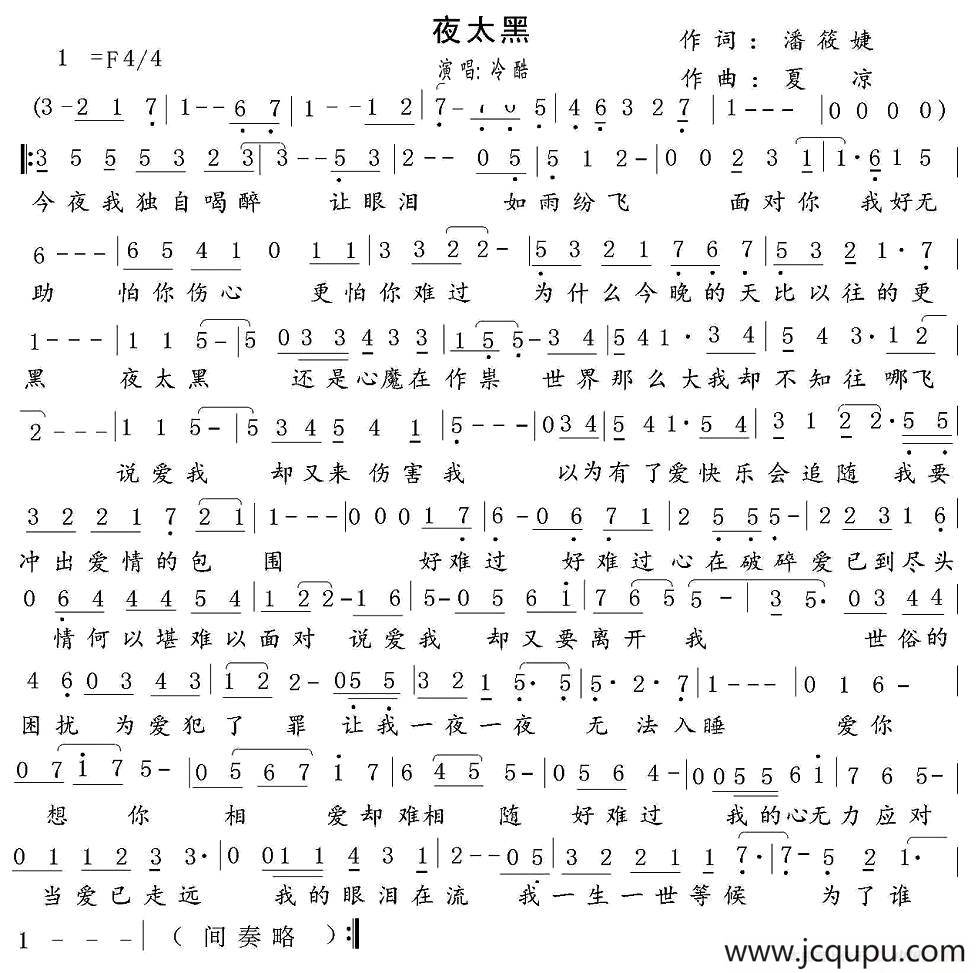 夜太黑
1 =F4/4
作词：潘筱婕
演唱：冷酷
作曲：夏 凉
(3-2 1 7|1--6 7|1--1 2|7- 7 6 5|4 6 3 2 7|1--|0 0 0 0)
|:3 5 5 5 3 2 3|3--5 3|2--0 5|5 1 2-|0 0 2 3 1|1·6 1 5|
今夜我独自喝醉 让眼泪 如雨纷飞 面对你 我好无
6---|6 5 4 1 0 1 1|3 3 2 2-|5 3 2 1 7 6 7|5 3 2 1·7|
助 怕你伤心 更怕你难过 为什么今晚的天比以往的更
1---|1 1 5-|5 0 3 3 4 3 3|1 5 5-3 4|5 4 1·3 4|5 4 3·1 2|
黑 夜太黑 还是心魔在作祟 世界那么大我却不知往哪飞
2---|1 1 5-|5 3 4 5 4 1|5---|0 3 4 5 4 1·5 4|3 1 2 2·5 5|
说爱我 却又来伤害我 以为有了爱快乐会追随 我要
3 2 2 1 7 2 1|1---|0 0 0 1 7|6-0 6 7 1|2 5 5 5-|2 2 3 1 6|
冲出爱情的包 围 好难过 好难过心在破碎爱已到尽头
0 6 4 4 4 5 4|1 2 2-1 6|5-0 5 6 1|7 6 5 5-|3 5·0 3 4 4|
情何以堪难以面对 说爱我 却又要离开 我 世俗的
4 6 0 3 4 3|1 2 2-0 5 5|3 2 1 5·5|5·2·7|1---|0 1 6-|
困扰 为爱犯了 罪 让我一夜一夜 无法入睡 爱你
0 7 1 7 5-|0 5 6 7 1 7|6 4 5 5-|0 5 6 4-|0 0 5 5 6 1|7 6 5-|
想 你 相 爱却难相 随 好难过 我的心无力应对
0 1 1 2 3 3·|0 0 1 1 4 3 1|2--0 5|3 2 2 1 1 7·|7·5 2 1·|
当爱已走远 我的眼泪在流 我一生一世等候 为了谁
1 - - -|（间奏略）:|
www.jcqupu.com